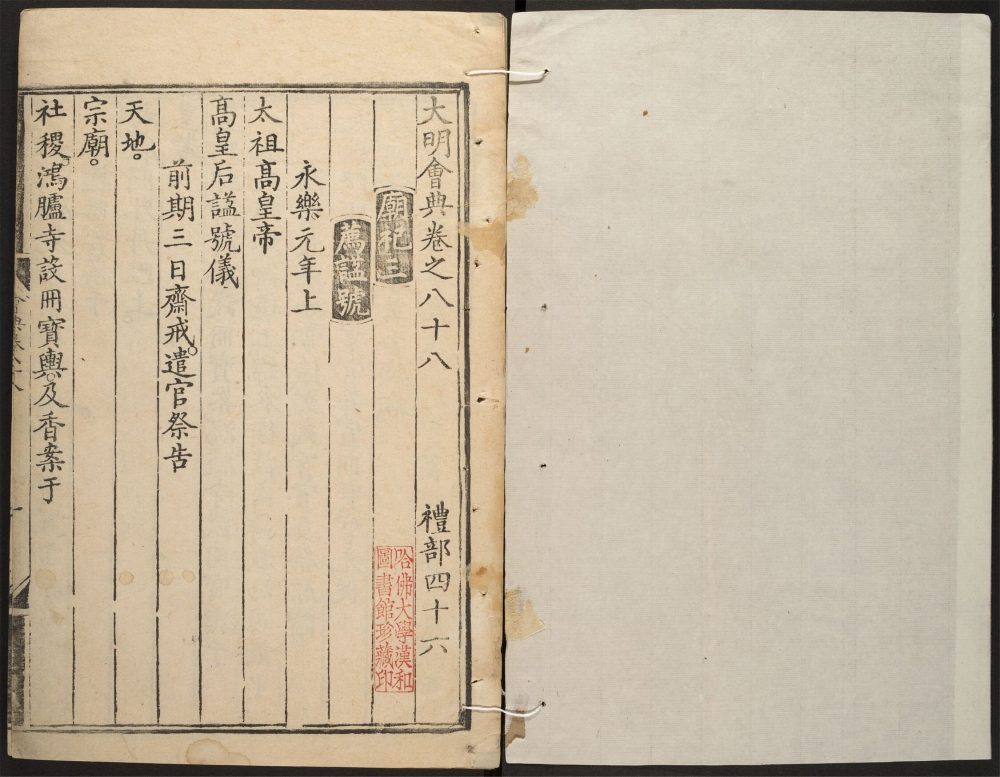 大明會典卷之八十八 禮部四十六
廟祀三
薦諡號
永樂元年上
太祖高皇帝
高皇后諡號儀
前期三日齋戒。遣官祭告
天地。
宗廟。
社稷。鴻臚寺設冊寶輿。及香案于
哈佛大學漢和
圖書館珍藏印